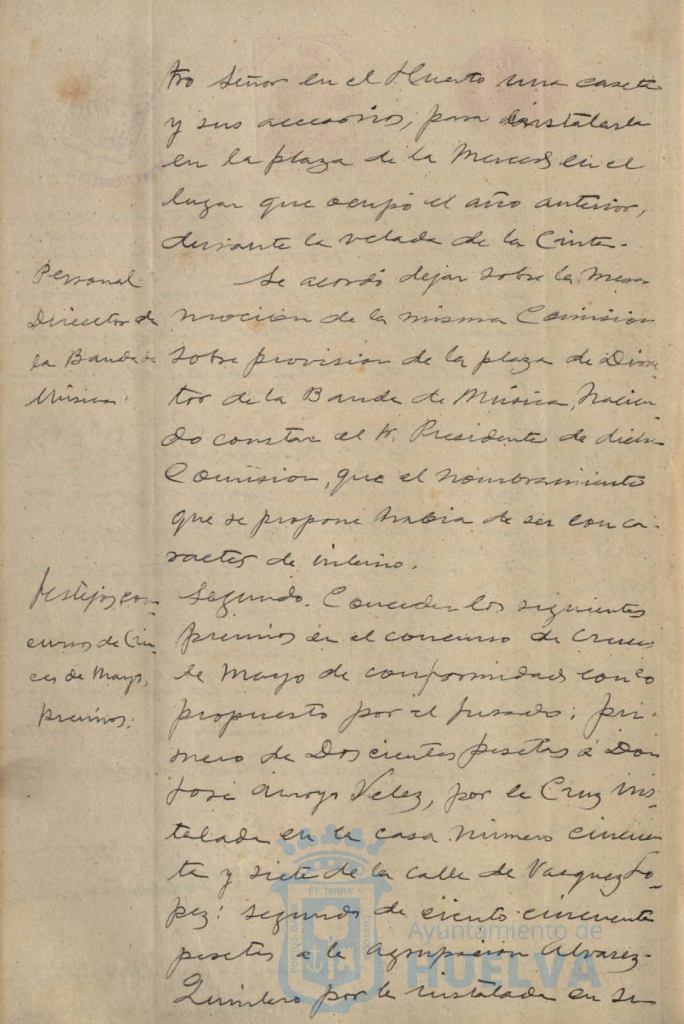 tro Señor en el Huerto una caseta
y sus accesorios, para instalarla
en la plaza de la Merced en el
lugar que ocupó el año anterior,
durante la velada de la Cinta.
Personal
Director de
la Banda de
Música:
Se acordó dejar sobre la Mesa
moción de la misma Comision
sobre provision de la plaza de Direc
tor de la Banda de Música, hacien
do constar el Sr. Presidente de dicha
Comision, que el nombramiento
que se propone habia de ser con ca-
racter de interino.
Festejos, con-
curso de Cru-
ces de Mayo,
premios:
Segundo. Conceder los siguientes
premios en el concurso de Cruces
de Mayo de conformidad con lo
propuesto por el Jurado: pri-
mero de Doscientas pesetas á Don
José Arroyo Velez, por la Cruz ins-
talada en la casa número cincuen
ta y siete de la calle de Vazquez Lo-
pez: segundo de ciento cincuenta
pesetas a la Agrupación Alvarez-
Quintero por la instalada en su
Ayuntamiento de
HUELVA